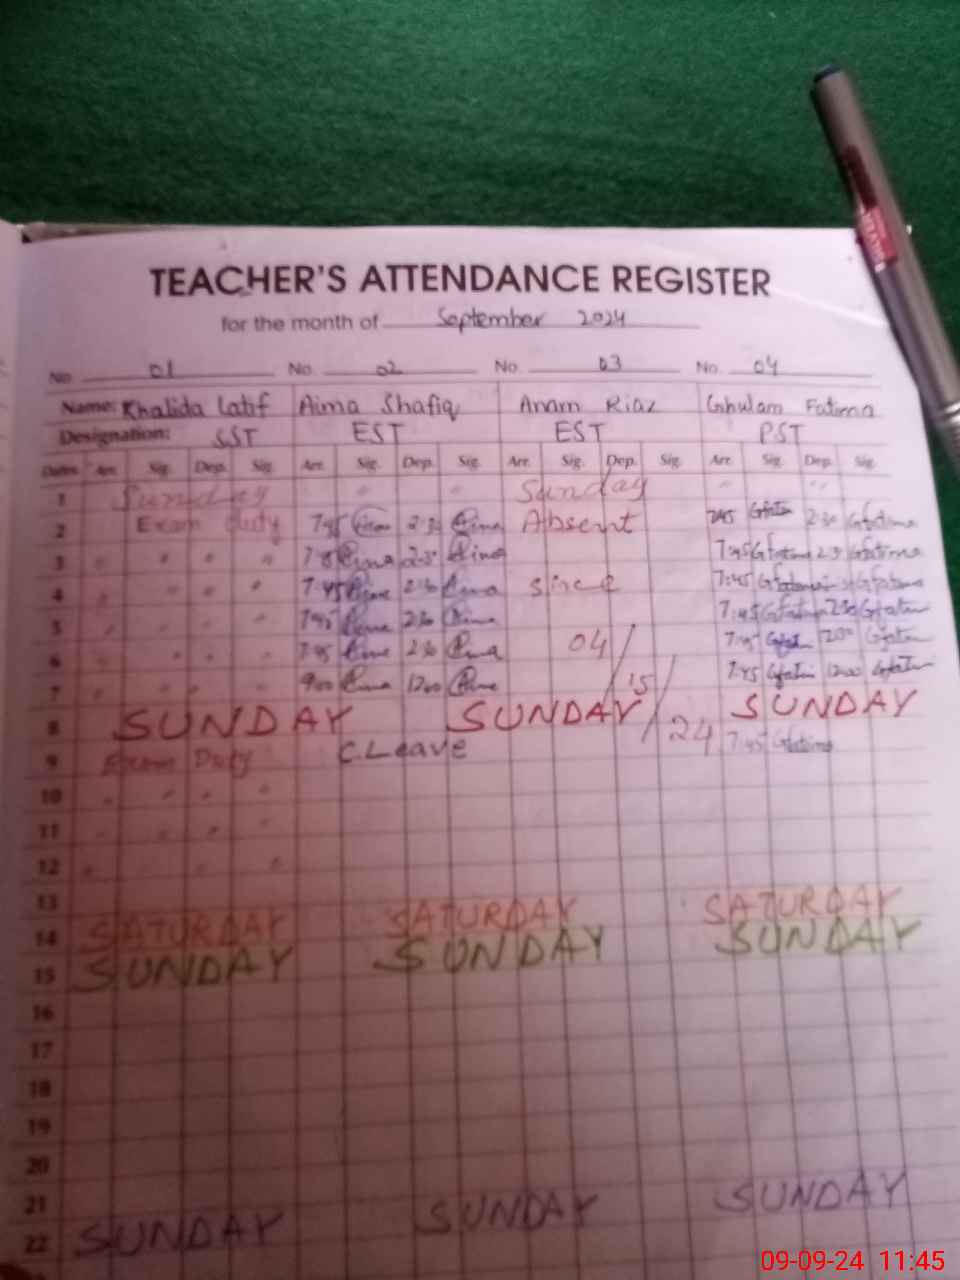 TEACHER'S ATTENDANCE REGISTER
for the month of September 2024
No. 01 No. 02 No. 03 No. 04
Name: Khalida Latif Aima Shafiq Anam Riaz Ghulam Fatima
Designation: SST EST EST PST
Dates Arr. Sig. Dep. Sig. Arr. Sig. Dep. Sig. Arr. Sig. Dep. Sig. Arr. Sig. Dep. Sig.
1 Sunday " " Sunday " "
2 Exam duty 7:45 Aima 2:30 Aima Absent 7:45 Gfatima 2:30 Gfatima
3 " " " " Aima 2:30 Aima 7:45 Gfatima 2:30 Gfatima
4 " " " " 7:45 Aima 2:30 Aima since 7:45 Gfatima Gfatima
5 7:45 Aima 2:30 Aima 7:45 Gfatima 2:30 Gfatima
6 " " " " 7:45 Aima 2:30 Aima 04/ 7:45 Gfatima 12:00 Gfatima
7 " " " " 9:00 Aima 12:00 Aima /15/ 7:45 Gfatima 12:00 Gfatima
8 SUNDAY SUNDAY SUNDAY
9 Exam Duty C.Leave 24 7:45 Gfatima
10 " " " "
11 " " " "
12 " "
13
14 SATURDAY SATURDAY SATURDAY
15 SUNDAY SUNDAY SUNDAY
16
17
18
19
20
21
22 SUNDAY SUNDAY SUNDAY
09-09-24 11:45